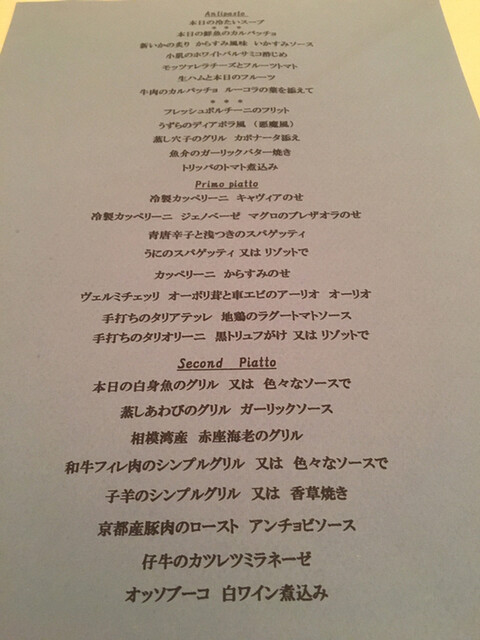 Antipasto
本日の冷たいスープ
＊＊＊
本日の鮮魚のカルパッチョ
新いかの炙り からすみ風味 いかすみソース
小肌のホワイトバルサミコ酢じめ
モッツァレラチーズとフルーツトマト
生ハムと本日のフルーツ
牛肉のカルパッチョ ルーコラの葉を添えて
＊＊＊
フレッシュポルチーニのフリット
うずらのディアボラ風 (悪魔風)
蒸し穴子のグリル カポナータ添え
魚介のガーリックバター焼き
トリッパのトマト煮込み
Primo piatto
冷製カッペリーニ キャヴィアのせ
冷製カッペリーニ ジェノベーゼ マグロのブレザオラのせ
青唐辛子と浅つきのスパゲッティ
うにのスパゲッティ 又は リゾットで
カッペリーニ からすみのせ
ヴェルミチェッリ オーボリ茸と車エビのアーリオ オーリオ
手打ちのタリアテッレ 地鶏のラグートマトソース
手打ちのタリオリーニ 黒トリュフがけ 又は リゾットで
Second Piatto
本日の白身魚のグリル 又は 色々なソースで
蒸しあわびのグリル ガーリックソース
相模湾産 赤座海老のグリル
和牛フィレ肉のシンプルグリル 又は 色々なソースで
子羊のシンプルグリル 又は 香草焼き
京都産豚肉のロースト アンチョビソース
仔牛のカツレツミラネーゼ
オッソブーコ 白ワイン煮込み